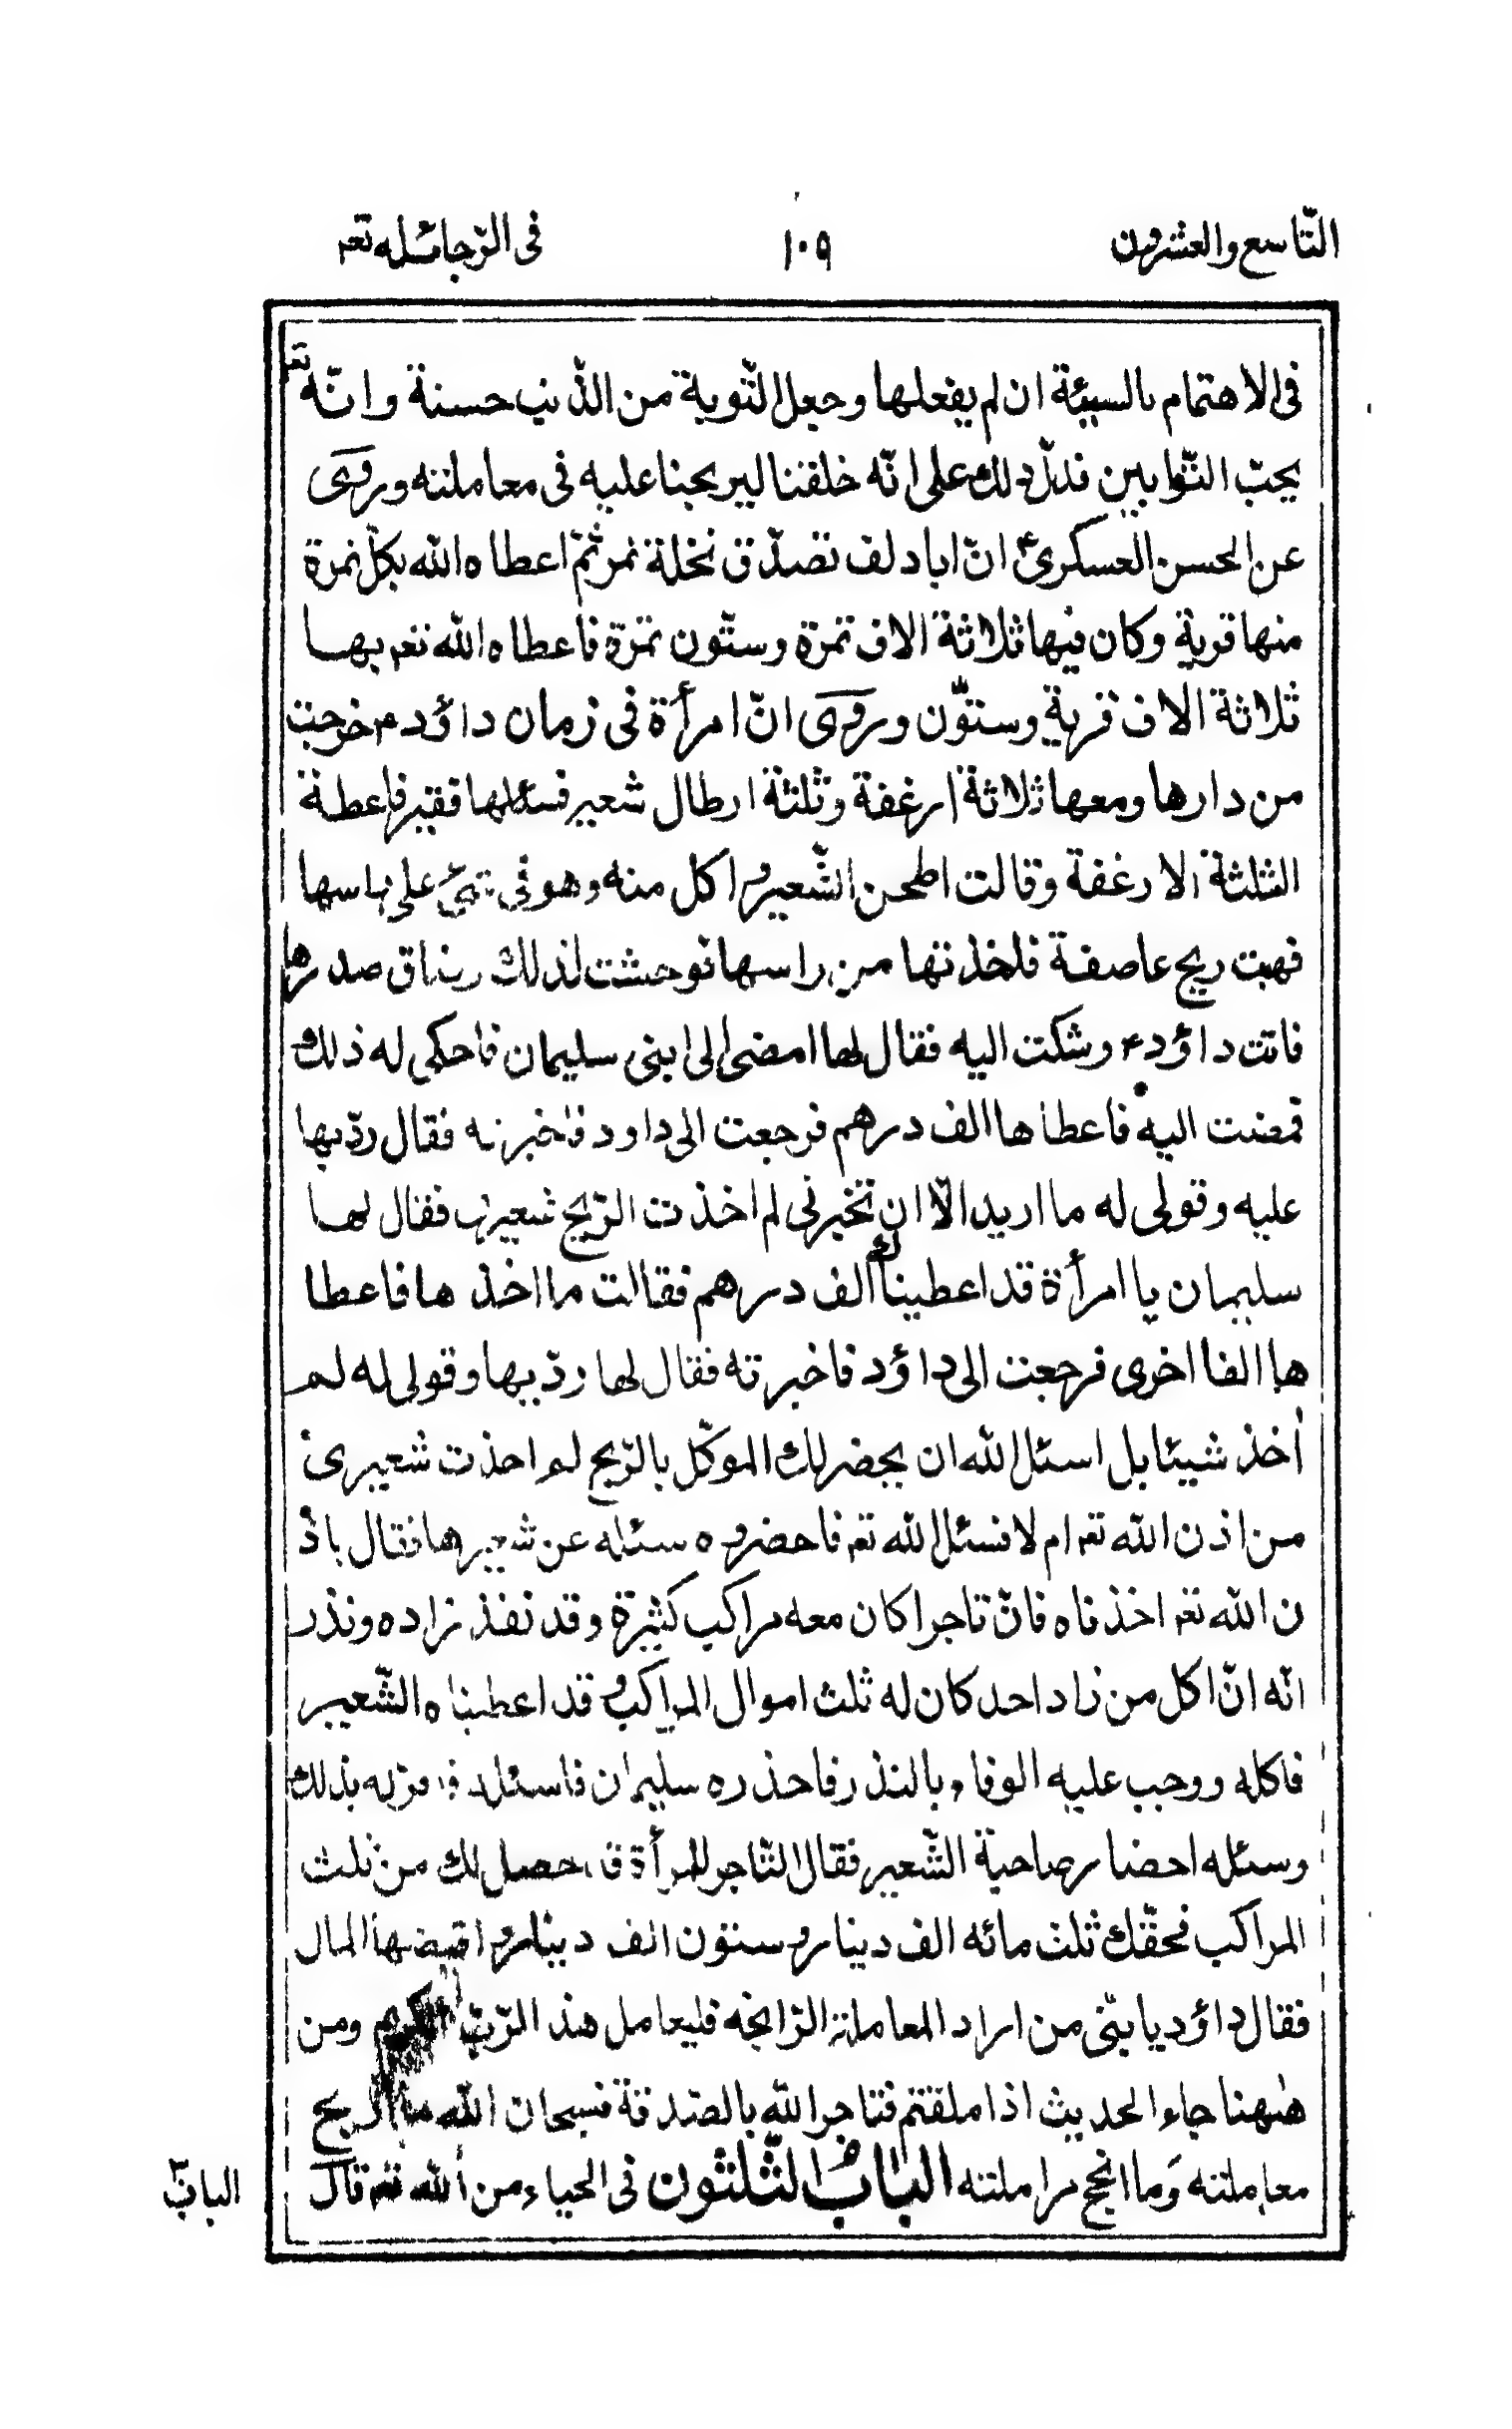 التّاسع والعشرون
١٠٩
فى الرّجاء لله تعم
فى الاهتمام بالسيئة ان لم يفعلها وجعل التّوبة من الذّنب حسنة وانّه تعم
يحبّ التّوّابين فدلّ ذلك على انّه خلقنا ليربحنا عليه فى معاملته وروى
عن الحسن العسكرىّ ع انّ ابا دلف تصدّق نخلة تمر ثمّ اعطاه الله بكلّ تمرة
منها قرية وكان فيها ثلاثة الاف تمرة وستّون تمرة فاعطاه الله تعم بهـا
ثلاثة الاف قرية وستّون وروى انّ امرأة فى زمان داؤد ع خرجت
من دارها ومعها ثلاثة ارغفة وثلثة ارطال شعير فسئلها فقير فاعطة
الثلثة الارغفة وقالت اطحن الشّعير واكل منه وهو فى على راسها
فهبت ريح عاصفة فاخذتها من راسها فوحشت لذلك وضاق صدرها
فاتت داؤد ع وشكت اليه فقال لها امضى الى ابنى سليمان فاحكى له ذلك
فمضت اليه فاعطاها الف درهم فرجعت الى داود فاخبرته فقال ردّيها
عليه وقولى له ما اريد الّا ان تخبرنى لم اخذت الرّيح شعيرى فقال لهـا
سليمان يا امرأة قد اعطيناك الف درهم فقالت ما اخذها فاعطا
ها الفا اخرى فرجعت الى داؤد فاخبرته فقال لها ردّيها وقولى له لم
أخذ شيئا بل اسئل الله ان يحضر لك الموكّل بالرّيح لم اخذت شعيرى
من اذن الله تعم ام لا فسئل الله تعم فاحضروه سئله عن شعيرها فقال باذ
ن الله تعم اخذناه فانّ تاجرا كان معه مراكب كثيرة وقد نفذ زاده ونذر
انّه انّ اكل من زاد احد كان له ثلث اموال المراكب وقد اعطيناه الشّعير
فاكله ووجب عليه الوفاء بالنذر فاحذره سليمان فاسئله بذلك
وسئله احضار صاحبة الشّعير فقال التّاجر للمرأة حصل لك من ثلث
المراكب فحقّك ثلث مائه الف دينار وستون الف دينار واقبضها المال
فقال داؤد يا بنّى من اراد المعاملة الرّابحه فليعامل هذا الرّبّ الكريم ومن
هٰهنا جاء الحديث اذا ملقتم فتاجرا الله بالصّدقة فسبحان الله ما اربح
معاملته وما انجح مراملته الباب الثّلثون فى الحياء من الله تعم قال
الباب